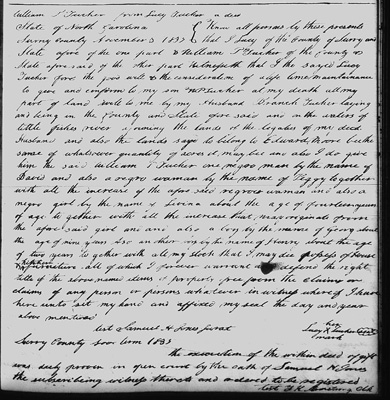 William T Tucker from Lucy Tucker a deed
State of North Carolina Know all persons by these presents
Surry County November 3 1833 that I Lucy of the County of Surry and
State afore of the one part & William T Tucker of the County &
State afore said of the other part Witnesseth that I the sayed Lucy
Tucker fore the good will & the consideration of a life time maintainance
to give and conform to my son W T Tucker at my death all my
part of land to me by my Husband Branch Tucker laying
and being in the County and State afore said and on the waters of
little fishes river ajoining the lands of the legatees of my deed
Husband and also the lands to belong to Edward Moore be the
same or whatever quantity of acors it may be and also I do give
him the said William T Tucker one negro man by the name of
Davis and also a negro woman by the name of Peggy together
with all the increase of the afore said negrow woman and also a
negro girl by the name of about the age of fourteen years
of age to gether with all the increase that may originate from
the afore said girl and also a boy by the name of about
the age of nine years also another by the name of Henry about the age
of two years to gether with all my stock that I may die of House
furniture all of which I forever warrant defend the right
title of the above named items of property free from the claim or
claims of any person or persons whatever in witness where of I have
here unto set my hand and affixed my seal the day and year
above mentioned
her
Lucy Tucker
mark
test Samuel H Jones Jurat
Surry County term 1833
the execution of the within deed of gift
was duly proven in open court by the oath of Samuel H Jones
the subscribing witness thereto and ordered to be registered
test F. K. Armstrong Clk